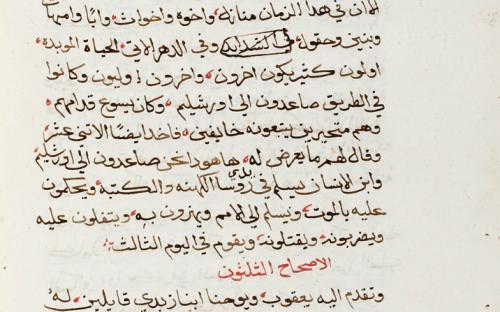 الآن في هذا الزمان منازله واخوه واخوات وابا وامهات
وبنين وحقول في الشدايد وفي الدهر الاتي الحياة الموبده
اولون كثير يكون اخرون واخرون اوليون وكانوا
في الطريق صاعدون الي اورشليم وكان يسوع قدامهم
وهم متحيرين يتبعونه خايفين فاخد ايضًا الاتني عشر
وقال لهم ما يعرض له ها هودا نحن صاعدون الي اورشليم
وابن الانسان يسلم في يدي روسا الكهنه والكتبة ويحكمون
عليه بالموت ويسلم الي الامم ويهزون به ويتفلون عليه
ويضربونه ويقتلونه ويقوم في اليوم الثالث
الاصحاح الثلثون
وتقدم اليه يعقوب ويوحنا ابنا زبدي قايلين له